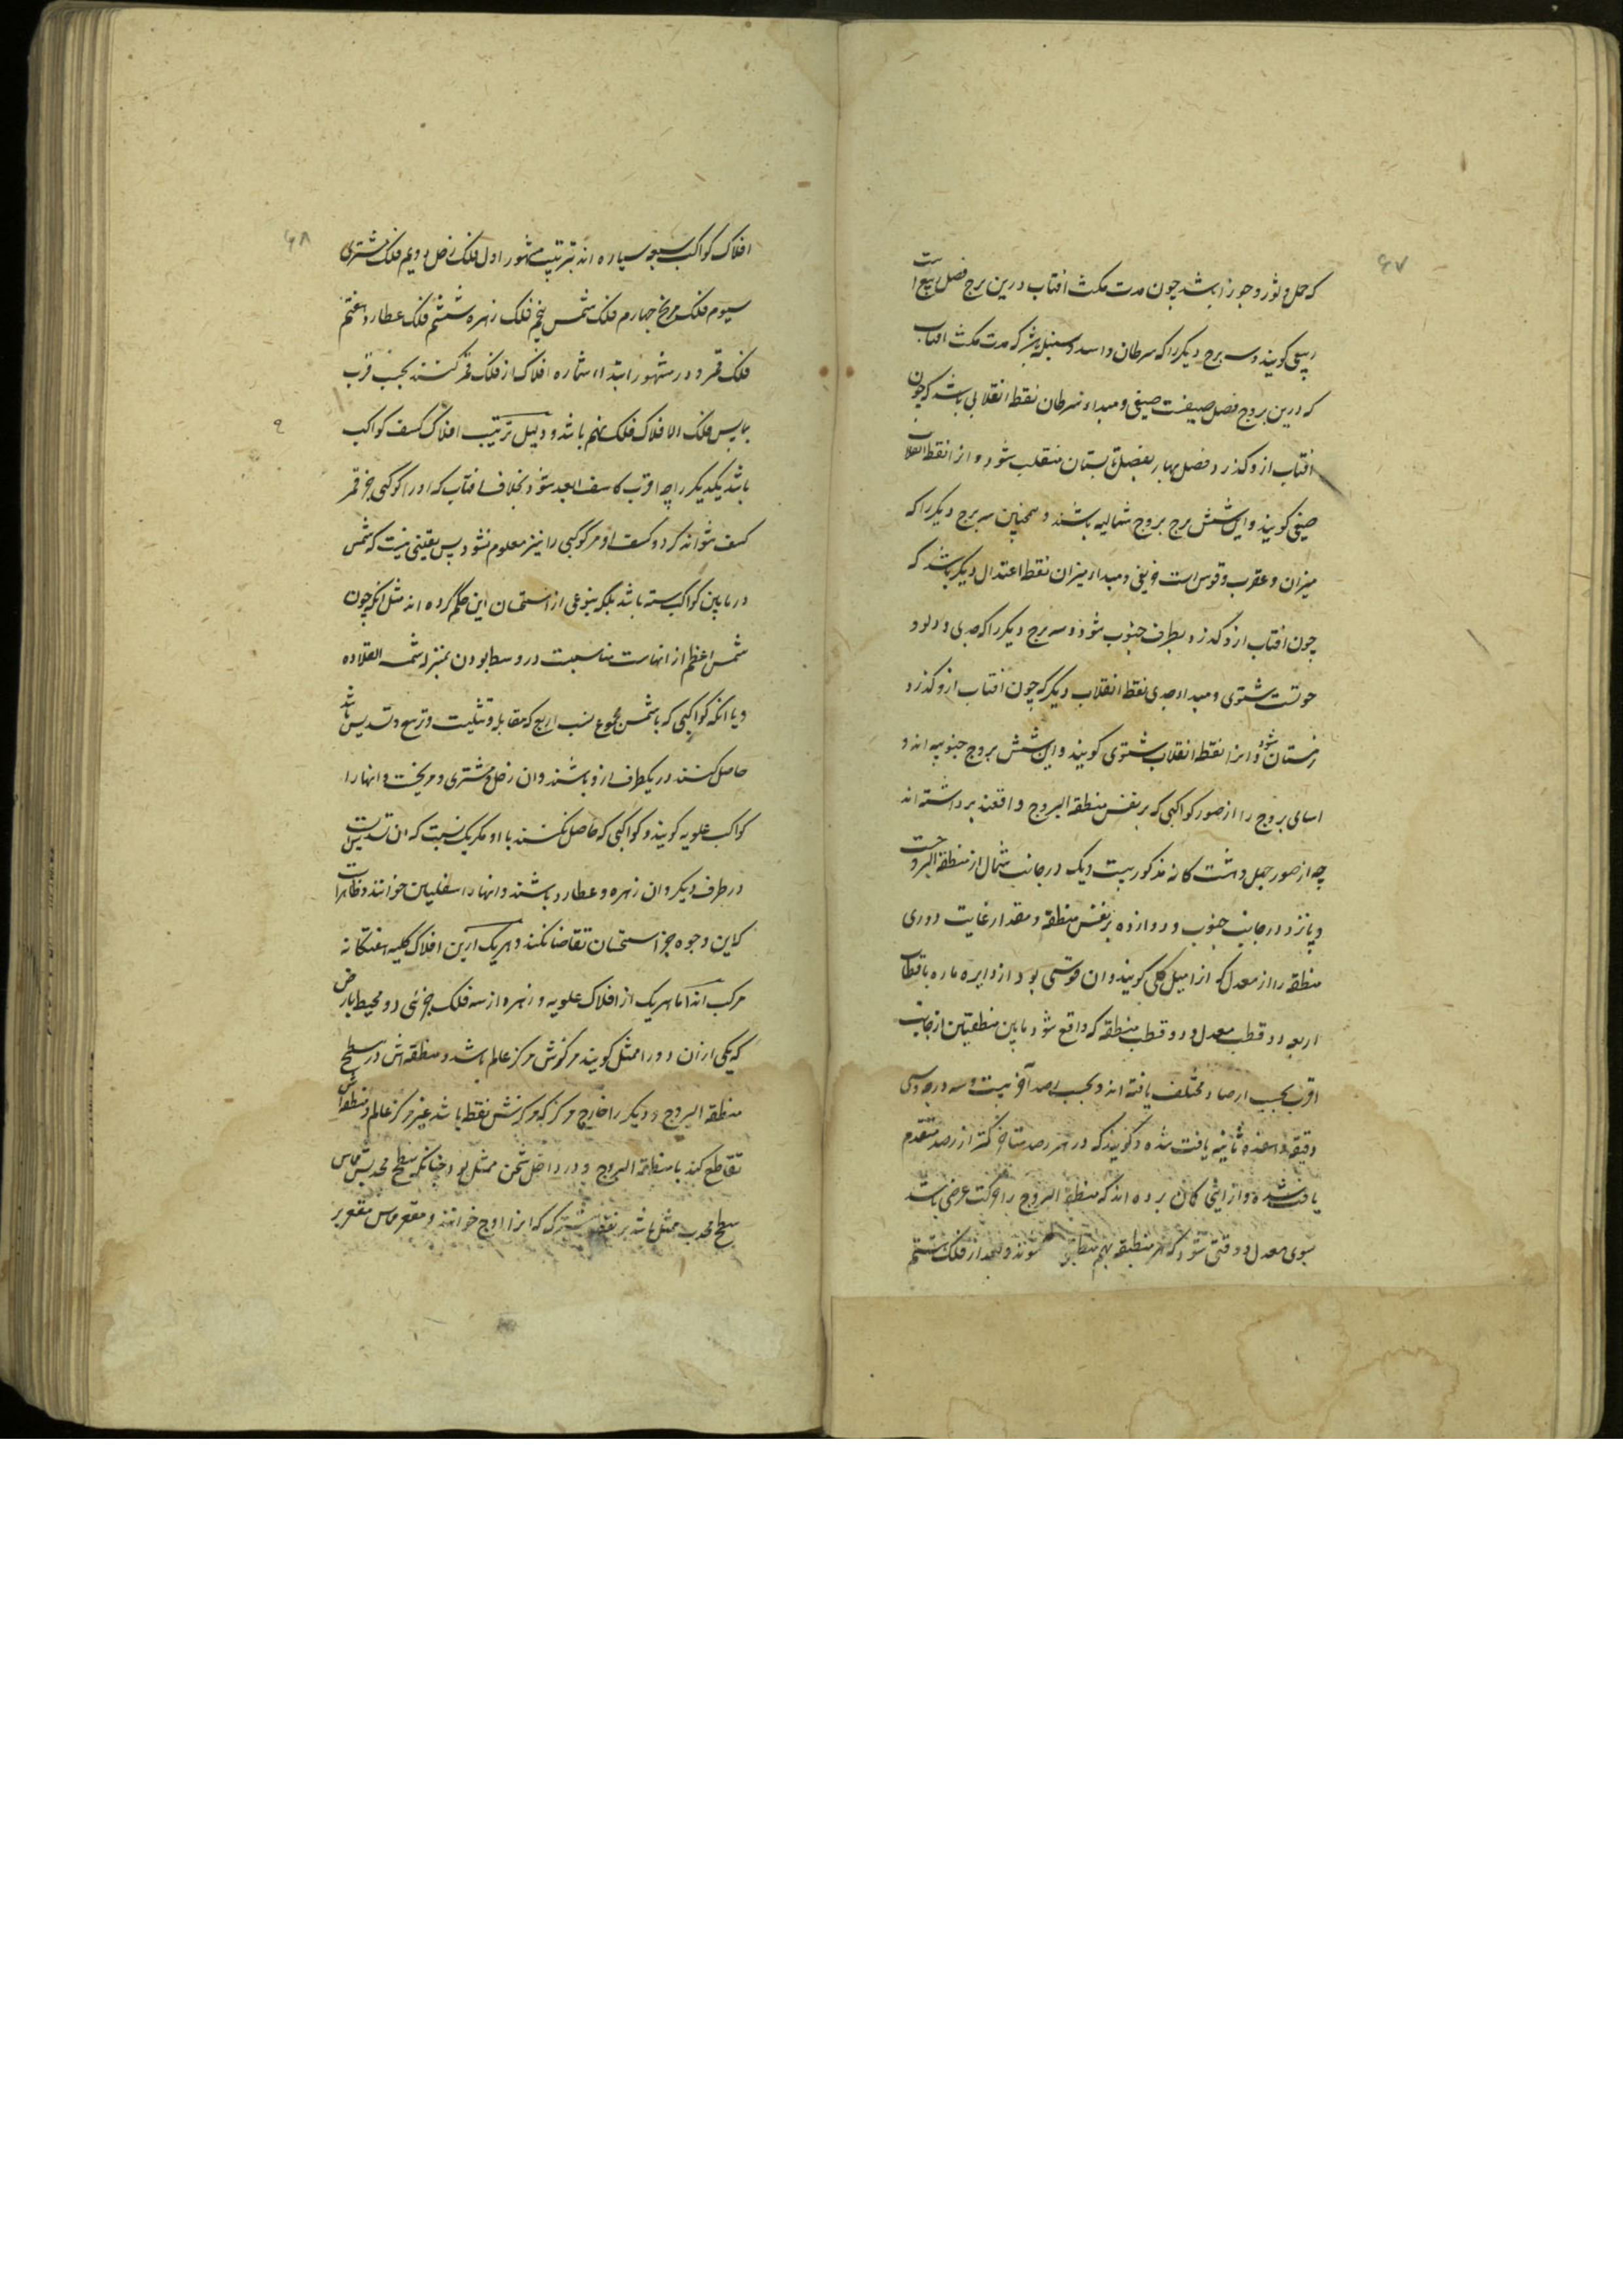 ۶۷
که حمل و ثور و جوزا باشد چون مدت مکث افتاب درین برج فصل ربیع است
ربیعی کویند و سه برج دیکر را که سرطان و اسد و سنبله باشد که مدت مکث افتاب
که درین بروج فصل صیفست صیفی و مبداء سرطان نقطه انقلابی باشد که چون
افتاب ازو کذرد فصل بهار بفصل تابستان منقلب شود و انرا نقطه انقلاب
صیفی کویند و این شش برج بروج شمالیه باشند و همچنین سه برج دیکر را که
میزان و عقرب و قوس است خریفی و مبداء میزان نقطه اعتدال دیکر باشد که
چون افتاب ازو کذرد بطرف جنوب شود و سه برج دیکر را که جدی و دلو و
حوتست شتوی و مبداء جدی نقطه انقلاب دیکر که چون افتاب ازو کذرد
زمستان شود و انرا نقطه انقلاب شتوی کویند و این شش بروج جنوبیه اند و
اسامی بروج را از صور کواکبی که بر نفس منطقة البروج واقعند برداشته اند
چه از صور چهل و هشت کانه مذکور بیست و یک در جانب شمال از منطقة البروجست
و پانزد در جانب جنوب و دوازده بر نفس منطقه و مقدار غایت دوری
منطقه را از معدل که انرا میل کلی کویند و ان قوسی بود از دایره ماره باقطاب
اربعه دو قطب معدل و دو قطب منطقه که واقع شود مابین منطقتین از جانب
اقرب بحسب ارصاد مختلف یافته اند و بحسب رصد آخر بیست و سه درجه و سی
دقیقه و هفده ثانیه یافت شده و کویند که در هر رصد متاخر کمتر از رصد متقدم
یافت شده و از اینجا کمان برده اند که منطقة البروج را حرکت عرضی باشد
بسوی معدل و وقتی شود که هر منطقه بهم منطبق شوند و بعد از فلک هشتم
۶۸
افلاک کواکب سبعه سیاره اند بترتیب مشهور اول فلک زحل دویم فلک مشتری
سیوم فلک مریخ چهارم فلک شمس پنجم فلک زهره ششم فلک عطارد هفتم
فلک قمر و در مشهور ابتداء شماره افلاک از فلک قمر کنند بحسب قرب
بما پس فلک الافلاک فلک نهم باشد و دلیل ترتیب افلاک کسف کواکب
باشد یکدیکر را چه اقرب کاسف ابعد شود بخلاف افتاب که او را کوکبی جز قمر
کسف نتواند کرد و کسف او مر کوکبی را نیز معلوم نشود پس یقینی نیست که شمس
در مابین کواکب سته باشد بلکه بنوعی از استحسان این حکم کرده اند مثل آنکه چون
شمس اعظم از انهاست مناسبت در وسط بودن بمنزله شمسه القلاده
و یا انکه کواکبی که با شمس مجموع نسب اربع که مقابله و تثلیث و تربیع و تسدیس باشد
حاصل کنند در یکطرف ازو باشند و ان زحل و مشتری و مریخست و انها را
کواکب علویه کویند و کواکبی که حاصل نکنند با او مکر یک نسبت که ان تسدیس است
در طرف دیکر و ان زهره و عطارد باشند و انها را سفلیین خوانند و ظاهر است
که این وجوه جز استحسان تقاضا نکنند و هر یک ازین افلاک کلیه هفتکانه
مرکب اند اما هر یک از افلاک علویه و زهره از سه فلک جزئی دو محیط بارض
که یکی از ان دو را ممثل کویند مرکزش مرکز عالم باشد و منطقه اش در سطح
منطقة البروج و دیکر را خارج مرکز که مرکزش نقطه باشد غیر مرکز عالم و منطقه اش
تقاطع کند با منطقة البروج و در داخل ثخن ممثل بود چنانکه سطح محدبش مماس
سطح محدب ممثل باشد بر نقطه مشترکه که انرا اوج خوانند و مقعر مماس مقعر بر